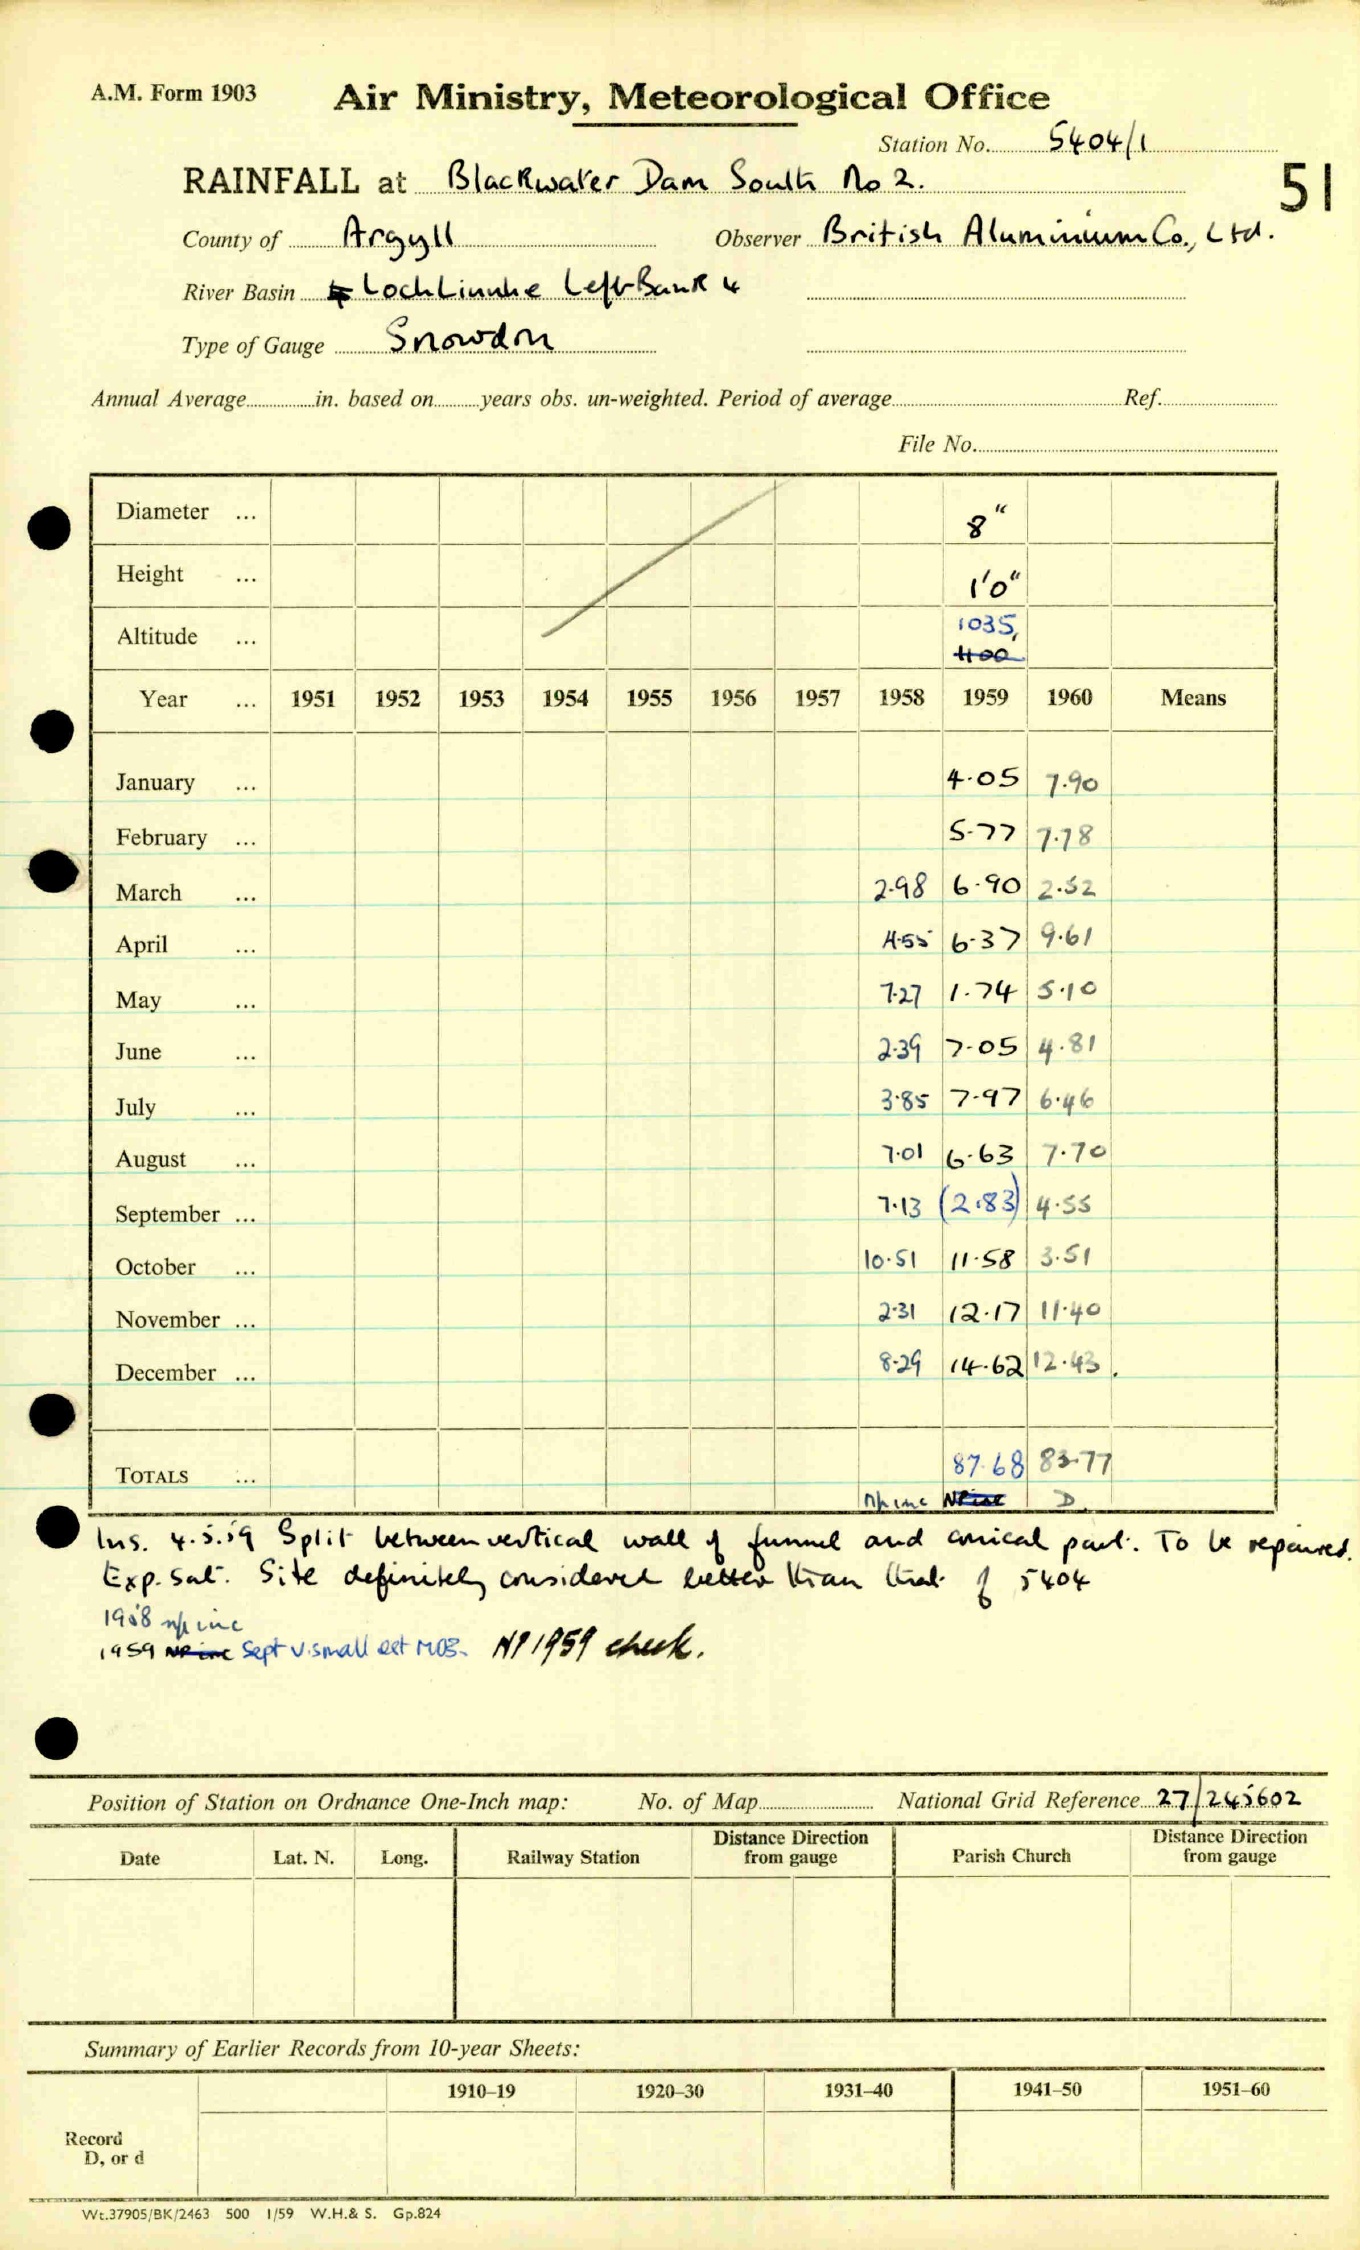 A.M. Form 1903 Air Ministry, Meteorological Office
Station No. 5404/1
RAINFALL at Blackwater Dam South No 2. 51
County of Argyll Observer British Aluminium Co., Ltd.
River Basin Loch Linnhe Left Bank 4
Type of Gauge Snowdon
Annual Average in. based on years obs. un-weighted. Period of average Ref.
File No.
Diameter ... 8"
Height ... 1'0"
Altitude ... 1035,
1100
Year ... 1951 1952 1953 1954 1955 1956 1957 1958 1959 1960 Means
January ... 4.05 7.90
February ... 5.77 7.78
March ... 2.98 6.90 2.52
April ... 4.55 6.37 9.61
May ... 7.27 1.74 5.10
June ... 2.39 7.05 4.81
July ... 3.85 7.97 6.46
August ... 7.01 6.63 7.70
September ... 7.13 (2.83) 4.55
October ... 10.51 11.58 3.51
November ... 2.31 12.17 11.40
December ... 8.29 14.62 12.43.
TOTALS ... 87.68 83.77
Np inc NP inc D
Ins. 4.5.59 Split between vertical wall of funnel and conical part. To be repaired.
Exp. Sat. Site definitely considered better than that of 5404
1958 np inc
1959 NP inc Sept v. small est MOE. NP 1959 check.
Position of Station on Ordnance One-Inch map: No. of Map National Grid Reference 27/245602
Date Lat. N. Long. Railway Station Distance Direction from gauge Parish Church Distance Direction from gauge
Summary of Earlier Records from 10-year Sheets:
1910–19 1920–30 1931–40 1941–50 1951–60
Record
D, or d
Wt.37905/BK/2463 500 1/59 W.H.& S. Gp.824